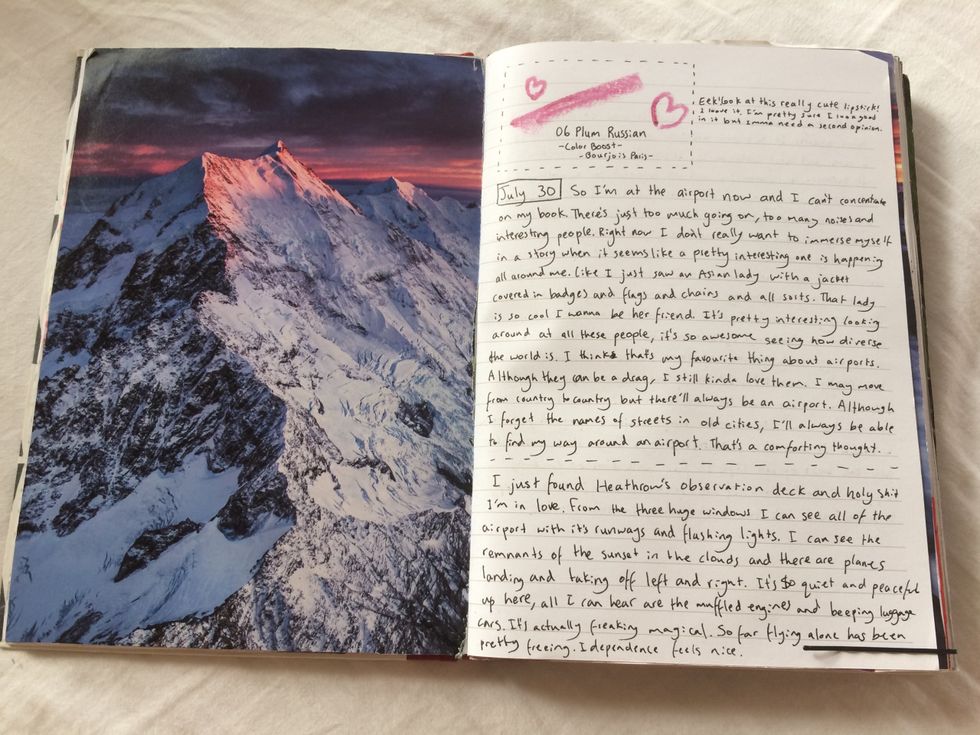 06 Plum Russian
-Color Boost-
-Bourjois Paris-
Eek! look at this really cute lipstick!
I love it, I'm pretty sure I look good
in it but Imma need a second opinion.
July 30 So I'm at the airport now and I can't concentrate
on my book. There's just too much going on, too many noises and
interesting people. Right now I don't really want to immerse myself
in a story when it seems like a pretty interesting one is happening
all around me. Like I just saw an Asian lady with a jacket
covered in badges and flags and chains and all sorts. That lady
is so cool I wanna be her friend. It's pretty interesting looking
around at all these people, it's so awesome seeing how diverse
the world is. I think that's my favourite thing about airports.
Although they can be a drag, I still kinda love them. I may move
from country to country but there'll always be an airport. Although
I forget the names of streets in old cities, I'll always be able
to find my way around an airport. That's a comforting thought.
I just found Heathrow's observation deck and holy shit
I'm in love. From the three huge windows I can see all of the
airport with it's runways and flashing lights. I can see the
remnants of the sunset in the clouds and there are planes
landing and taking off left and right. It's so quiet and peaceful
up here, all I can hear are the muffled engines and beeping luggage
cars. It's actually freaking magical. So far flying alone has been
pretty freeing. Idependence feels nice.